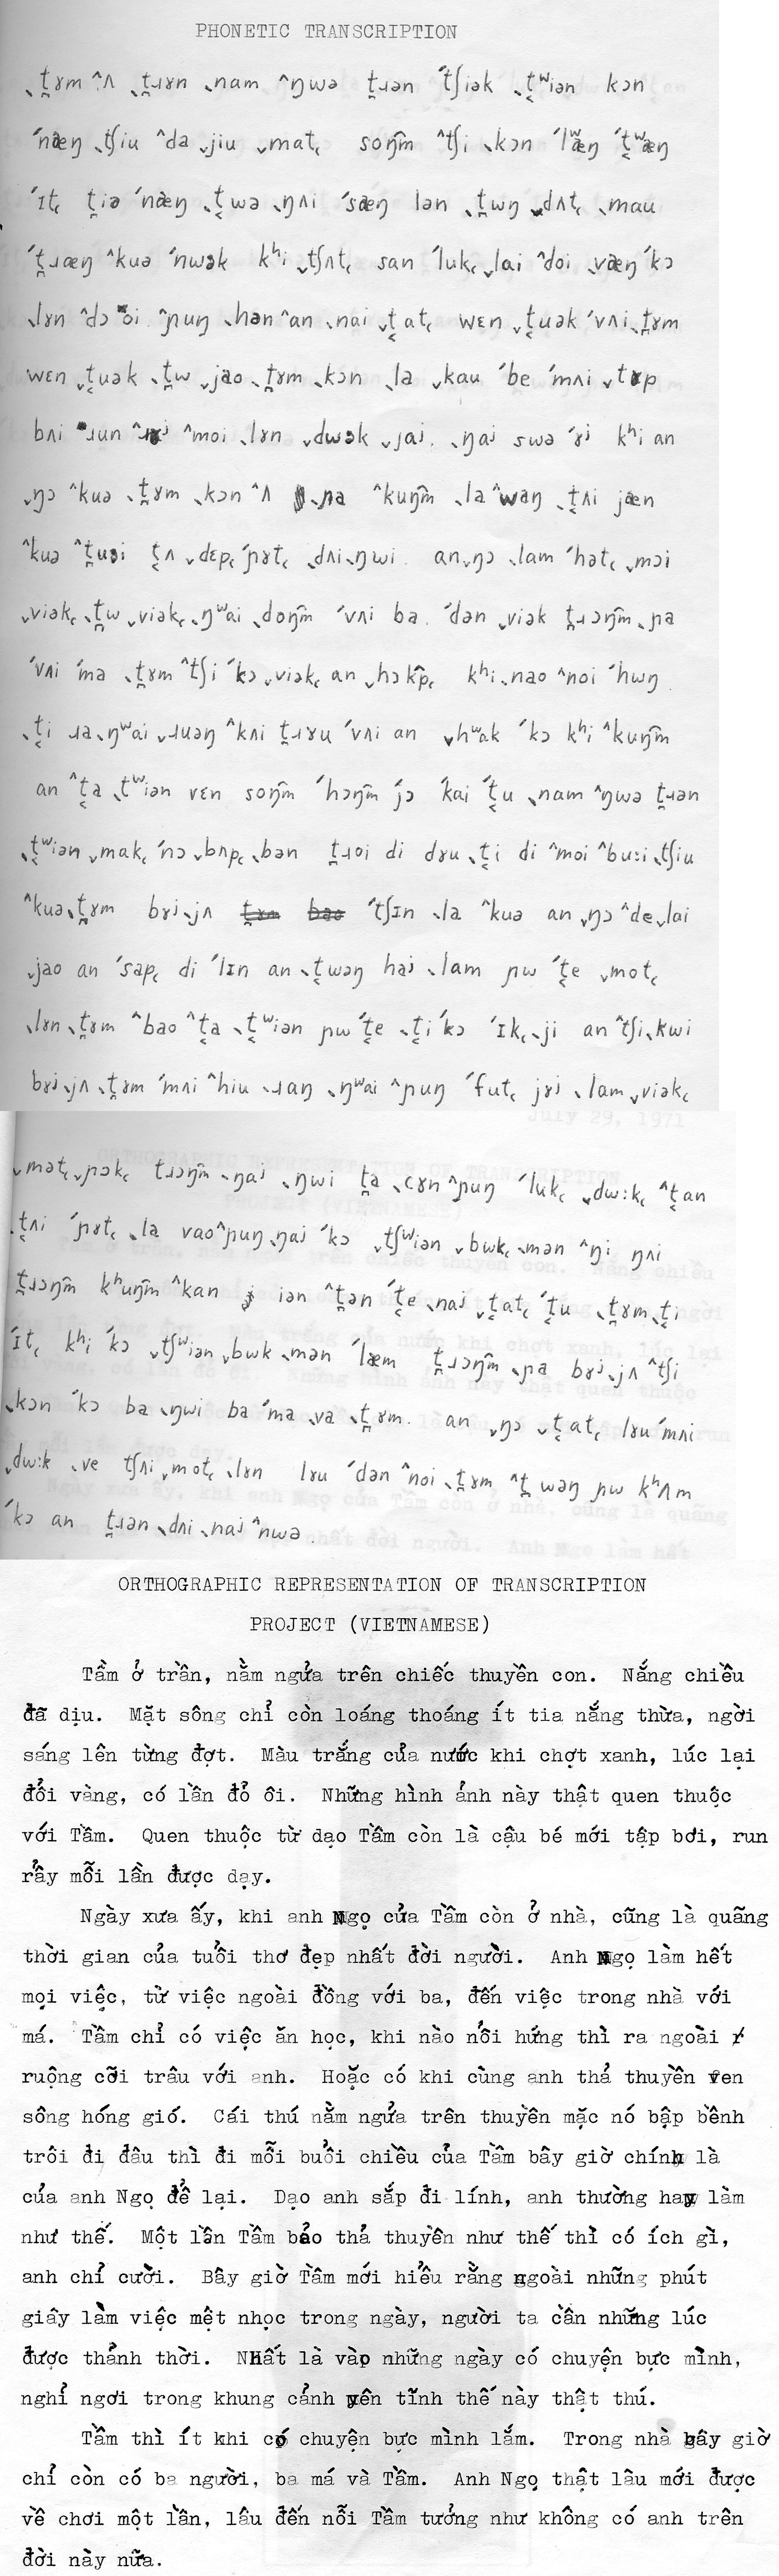 PHONETIC TRANSCRIPTION
ˎt̪ɤm ˆʌ ˎt̪ɹɤn ˎnam ˆŋwə t̪ɹən ˊtʃiək ˎt̪ʷiən kɔn
ˊnæŋ ˎtʃiu ˆda ˬjiu ˬmat˛ soŋ͡m ˆtʃi ˎkɔn ˊlʷæŋ ˊt̪ʷæŋ
ˊɪt˛ t̪iə ˊnæŋ ˎt̪wə ˎŋʌi ˊsæŋ lən ˎt̪wŋ ˬdʌt˛ ˎmau
ˊt̪ɹæŋ ˆkuə ˊnwək kʰi ˬtʃʌt˛ san ˊluk˛ ˬlai ˆdoi ˎvæŋ ˊkɔ
ˎlɤn ˆdɔ oi ˆɲuŋ ˎhən ˆan ˎnai ˬt̪at˛ wɛn ˬt̪uək ˊvʌi ˎt̪ɤm
wɛn ˬt̪uək ˎt̪w ˬjao ˎt̪ɤm ˎkɔn ˎla ˬkau ˊbe ˊmʌi ˬtɤp
bʌi ɹun ˆɹɤj ˆmoi ˎlɤn ˬdwək ˬjai. ˎŋai swə ˊɤj kʰi an
ˬŋɔ ˆkuə ˎt̪ɤm ˎkɔn ˆʌ ˎɲa ˆkuŋ͡m ˎla ˆwaŋ ˎt̪ʌi jæn
ˆkuə ˆt̪uəi t̪ʌ ˬdɛp˛ ˊɲɤt˛ ˎdʌi ˎŋwi. an ˬŋɔ ˎlam ˊhət˛ ˬmɔi
ˬviək˛ ˎt̪w ˬviək˛ ˎŋʷai ˎdoŋ͡m ˊvʌi ba. ˊdən ˬviək t̪ɹɔŋ͡m ˎɲa
ˊvʌi ˊma ˎt̪ɤm ˆtʃi ˊkɔ ˬviək˛ an ˬhɔk͡p˛ kʰi ˎnao ˆnoi ˊhwŋ
ˎt̪i ɹa ˎŋʷai ˬɹuəŋ ˆkʌi t̪ɹɤu ˊvʌi an ˬhʷak ˊkɔ kʰi ˆkuŋ͡m
an ˆt̪a ˎtʷiən vɛn soŋ͡m ˊhɔŋ͡m ˊjɔ ˊkai ˊt̪u ˎnam ˆŋwə t̪ɹən
ˎt̪ʷiən ˬmak˛ ˊnɔ ˬbʌp˛ ˎbən t̪ɹoi di dɤu ˎt̪i di ˆmoi ˆbuːi ˎtʃiu
ˆkuə ˎt̪ɤm bɤj ˎjʌ ˊtʃɪn ˎla ˆkuə an ˬŋɔ ˆde ˬlai
ˬjao an ˊsap˛ di ˊlɪn an ˎt̪wəŋ hai ˎlam ɲw ˊt̪e ˬmot˛
ˎlɤn ˎt̪ɤm ˆbao ˆt̪a ˎt̪ʷiən ɲw ˊt̪e ˎt̪i ˊkɔ ˊɪk˛ ˎji an ˆtʃi ˎkwi
bɤj ˎjʌ ˎt̪ɤm ˊmʌi ˆhiu ˎɹaŋ ˎŋʷai ˆɲuŋ ˊfut˛ jɤj ˎlam ˬviək˛
ˬmət˛ ˬɲɔk˛ t̪ɹɔŋ͡m ˎŋai ˎŋwi t̪a ˎcɤn ˆɲuŋ ˊluk˛ ˬdwːk˛ ˆt̪an
ˎt̪ʌi ˊɲɤt˛ ˎla vao ˆɲuŋ ˎŋai ˊkɔ ˬtʃʷiən ˬbwk˛ ˎmən ˆŋi ŋʌi
t̪ɹɔŋ͡m kʰuŋ͡m ˆkan iən ˆt̪ən ˊt̪e ˎnai ˬt̪at˛ ˊt̪u ˎt̪ɤm ˎt̪i
ˊɪt˛ kʰi ˊkɔ ˬtʃʷiən ˬbwk ˎmən ˊlæm t̪ɹɔŋ͡m ˎɲa bɤj ˎjʌ ˆtʃi
ˎkɔn ˊkɔ ba ˎŋwi ba ˊma ˎva ˎt̪ɤm. an ˬŋɔ ˬt̪at˛ lɤu ˊmʌi
ˬdwːk ˎve tʃʌi ˬmot˛ ˎlɤn lɤu ˊdən ˆnoi ˎt̪ɤm ˆt̪wəŋ ɲw kʰʌm
ˊkɔ an t̪ɹən ˎdʌi ˎnai ˆnwə.
ORTHOGRAPHIC REPRESENTATION OF TRANSCRIPTION
PROJECT (VIETNAMESE)
Tầm ở trần, nằm ngửa trên chiếc thuyền con. Nắng chiều
đã dịu. Mặt sông chỉ còn loáng thoáng ít tia nắng thừa, ngời
sáng lên từng đợt. Màu trắng của nước khi chợt xanh, lúc lại
đổi vàng, có lần đỏ ối. Những hình ảnh này thật quen thuộc
với Tầm. Quen thuộc từ dạo Tầm còn là cậu bé mới tập bơi, run
rẩy mỗi lần được dạy.
Ngày xưa ấy, khi anh Ngọ của Tầm còn ở nhà, cũng là quãng
thời gian của tuổi thơ đẹp nhất đời người. Anh Ngọ làm hết
mọi việc, từ việc ngoài đồng với ba, đến việc trong nhà với
má. Tầm chỉ có việc ăn học, khi nào nổi hứng thì ra ngoài
ruộng cỡi trâu với anh. Hoặc có khi cùng anh thả thuyền ven
sông hóng gió. Cái thú nằm ngửa trên thuyền mặc nó bập bềnh
trôi đi đâu thì đi mỗi buổi chiều của Tầm bây giờ chính là
của anh Ngọ để lại. Dạo anh sắp đi lính, anh thường hay làm
như thế. Một lần Tầm bảo thả thuyền như thế thì có ích gì,
anh chỉ cười. Bây giờ Tầm mới hiểu rằng ngoài những phút
giây làm việc mệt nhọc trong ngày, người ta cần những lúc
được thảnh thời. Nhất là vào những ngày có chuyện bực mình,
nghỉ ngơi trong khung cảnh yên tĩnh thế này thật thú.
Tầm thì ít khi có chuyện bực mình lắm. Trong nhà bây giờ
chỉ còn có ba người, ba má và Tầm. Anh Ngọ thật lâu mới được
về chơi một lần, lâu đến nỗi Tầm tưởng như không có anh trên
đời này nữa.